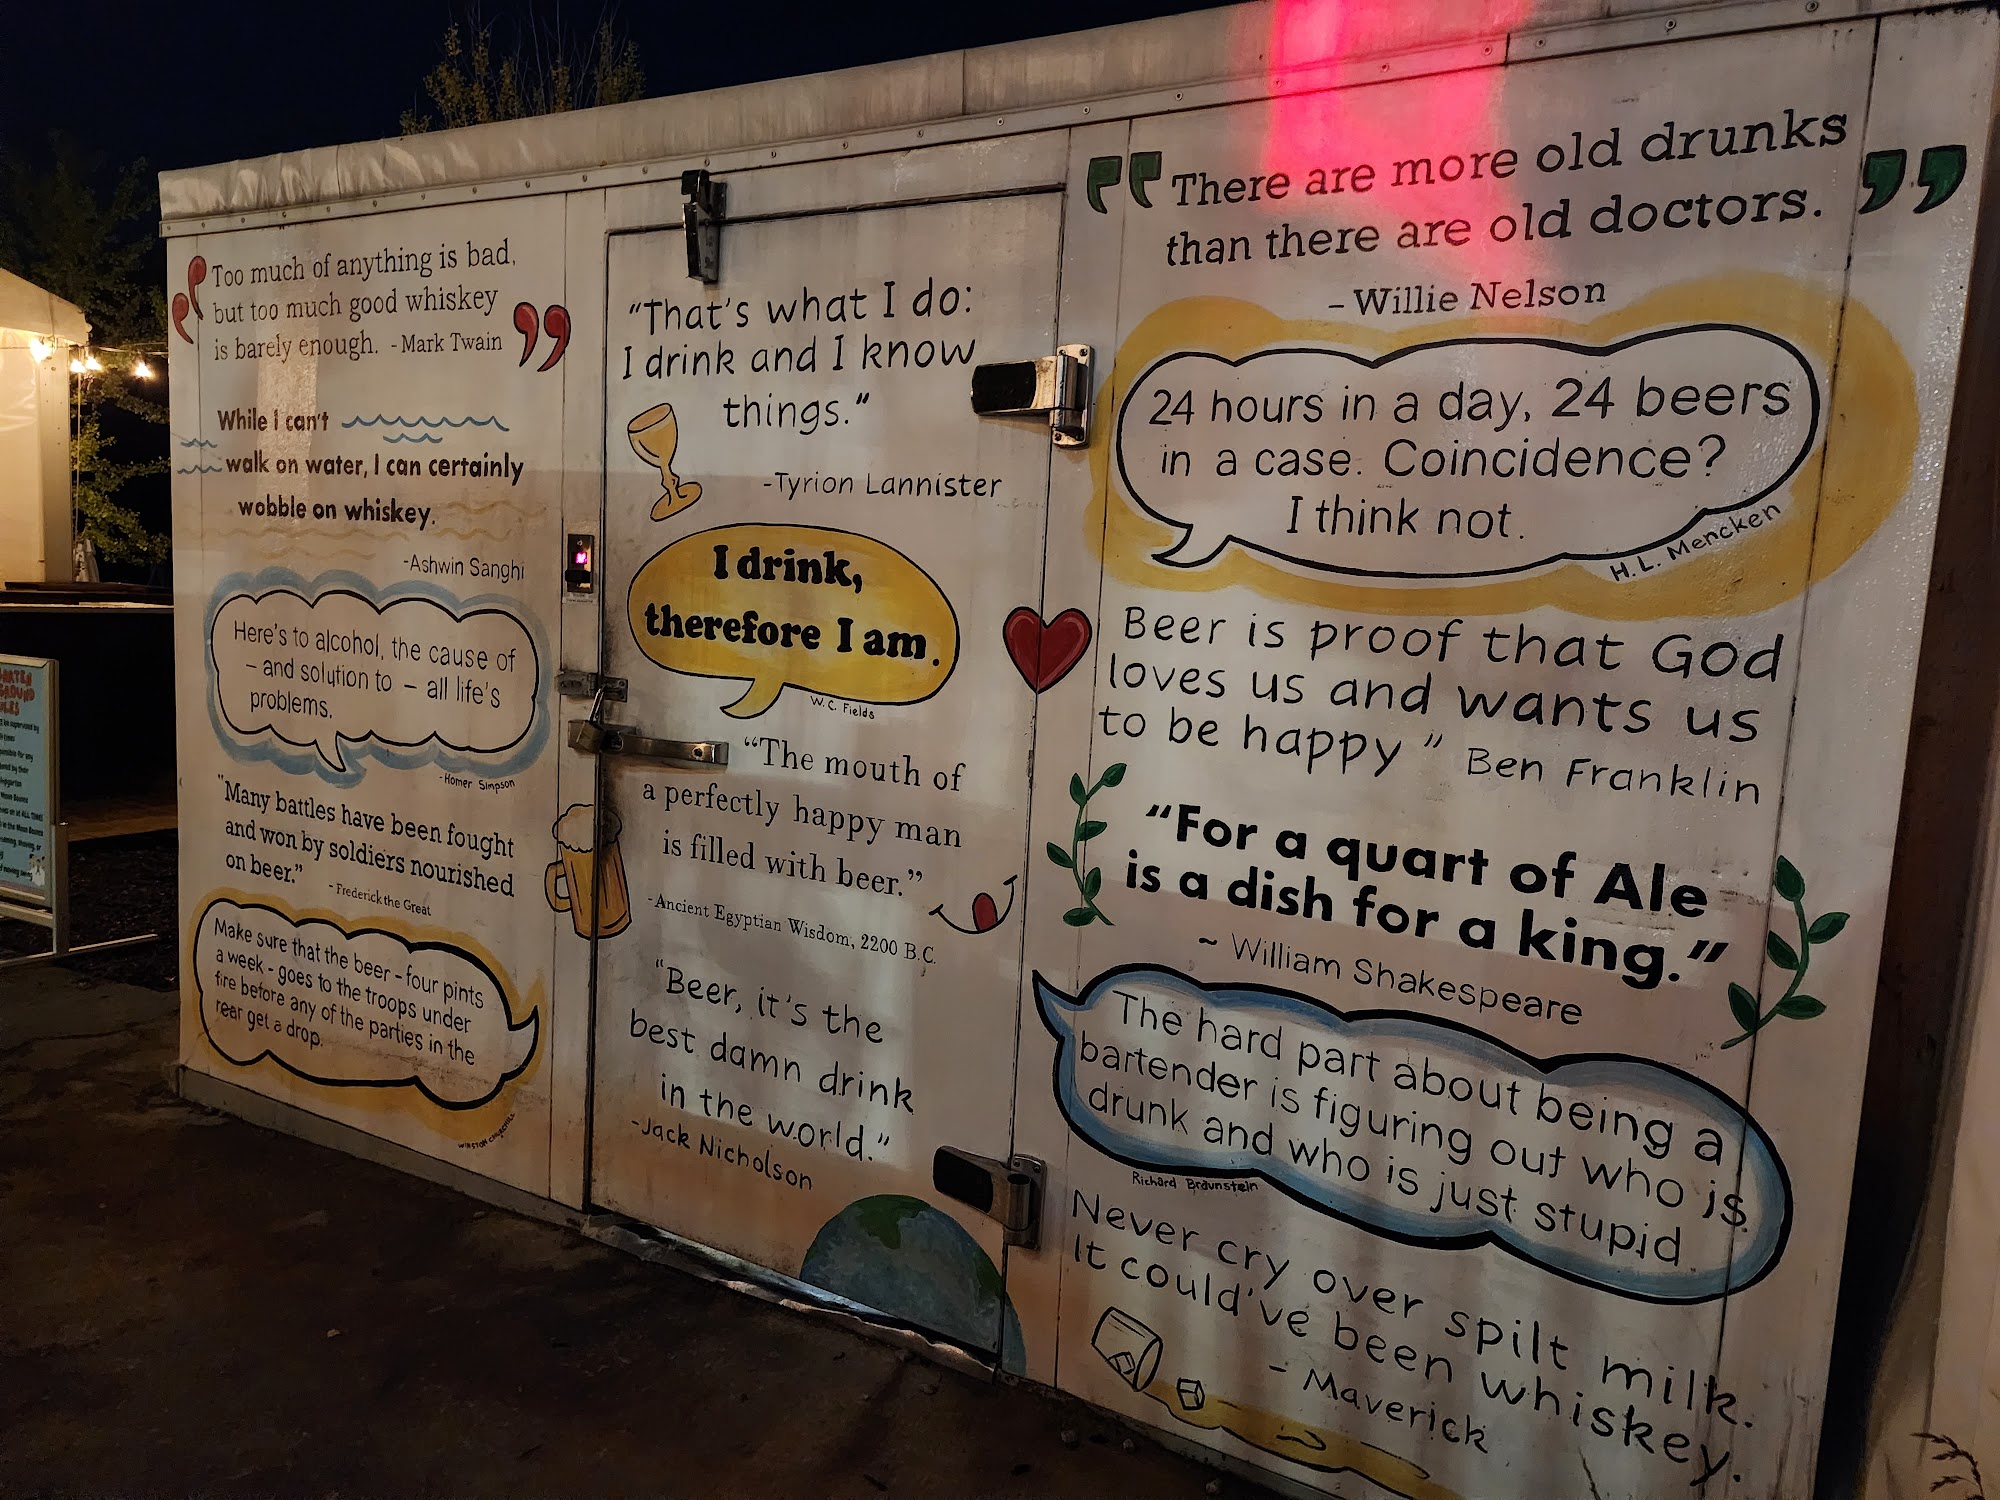 Too much of anything is bad,
but too much good whiskey
is barely enough. - Mark Twain
While I can't
walk on water, I can certainly
wobble on whiskey.
-Ashwin Sanghi
Here's to alcohol, the cause of
– and solution to – all life's
problems.
- Homer Simpson
"Many battles have been fought
and won by soldiers nourished
on beer."
- Frederick the Great
Make sure that the beer – four pints
a week – goes to the troops under
fire before any of the parties in the
rear get a drop.
WINSTON CHURCHILL
"That's what I do:
I drink and I know
things."
-Tyrion Lannister
I drink,
therefore I am.
W. C. Fields
"The mouth of
a perfectly happy man
is filled with beer."
-Ancient Egyptian Wisdom, 2200 B.C.
"Beer, it's the
best damn drink
in the world."
-Jack Nicholson
"There are more old drunks
than there are old doctors."
– Willie Nelson
24 hours in a day, 24 beers
in a case. Coincidence?
I think not.
H. L. Mencken
Beer is proof that God
loves us and wants us
to be happy" Ben Franklin
"For a quart of Ale
is a dish for a king."
~ William Shakespeare
The hard part about being a
bartender is figuring out who is
drunk and who is just stupid.
Richard Braunstein
Never cry over spilt milk.
It could've been whiskey.
- Maverick